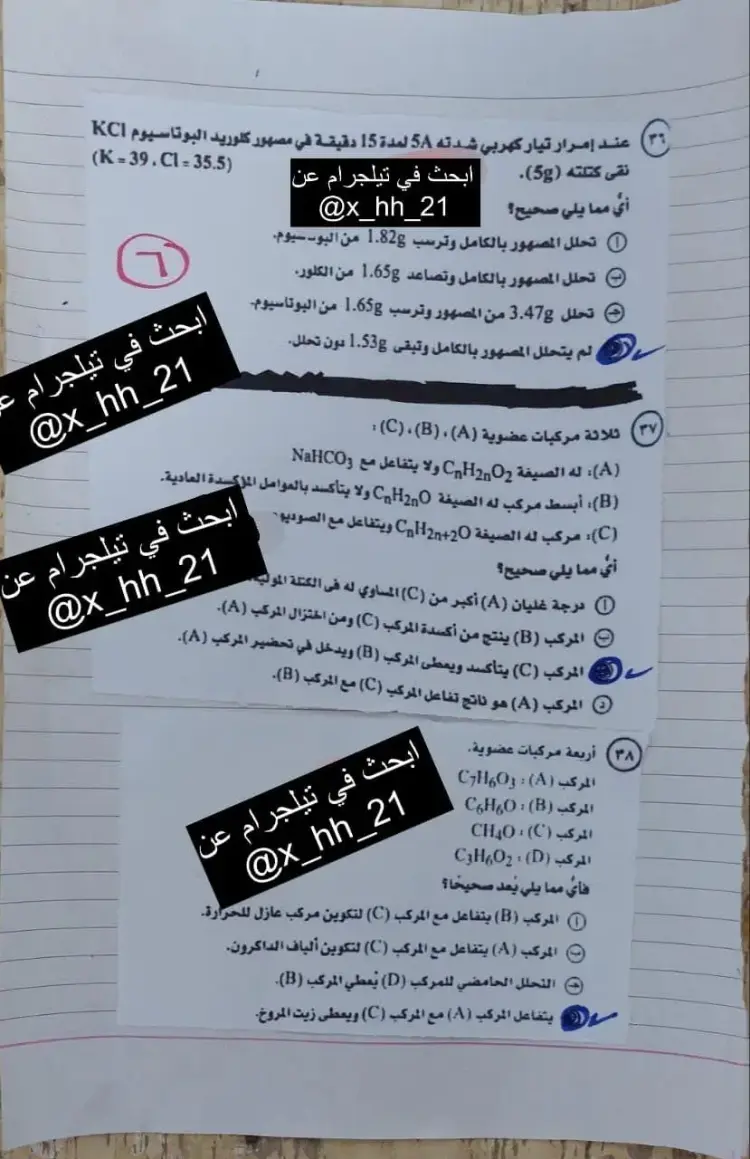 ٣٦ عند إمرار تيار كهربي شدته 5A لمدة 15 دقيقة في مصهور كلوريد البوتاسيوم KCl
نقى كتلته (5g). (K = 39 , Cl = 35.5)
ابحث في تيلجرام عن
@x_hh_21
أيٌ مما يلي صحيح؟
أ تحلل المصهور بالكامل وترسب 1.82g من البوتاسيوم.
ب تحلل المصهور بالكامل وتصاعد 1.65g من الكلور.
ج تحلل 3.47g من المصهور وترسب 1.65g من البوتاسيوم.
لم يتحلل المصهور بالكامل وتبقى 1.53g دون تحلل.
٦
ابحث في تيلجرام
@x_hh_21
٣٧ ثلاثة مركبات عضوية (A) ، (B) ، (C) :
(A): له الصيغة CnH2nO2 ولا يتفاعل مع NaHCO3
(B): أبسط مركب له الصيغة CnH2nO ولا يتأكسد بالعوامل المؤكسدة العادية.
(C): مركب له الصيغة CnH2n+2O ويتفاعل مع
ابحث في تيلجرام عن
@x_hh_21
أيٌ مما يلي صحيح؟
أ درجة غليان (A) أكبر من (C) المساوي له فى الكتلة
ب المركب (B) ينتج من أكسدة المركب (C) ومن اختزال المركب (A).
المركب (C) يتأكسد ويعطى المركب (B) ويدخل في تحضير المركب (A).
د المركب (A) هو ناتج تفاعل المركب (C) مع المركب (B).
٣٨ أربعة مركبات عضوية.
المركب (A) : C7H6O3
المركب (B) : C6H6O
المركب (C) : CH4O
المركب (D) : C3H6O2
ابحث في تيلجرام عن
@x_hh_21
فأيٌ مما يلي يُعد صحيحًا؟
أ المركب (B) يتفاعل مع المركب (C) لتكوين مركب عازل للحرارة.
ب المركب (A) يتفاعل مع المركب (C) لتكوين ألياف الداكرون.
ج التحلل الحامضي للمركب (D) يُعطي المركب (B).
يتفاعل المركب (A) مع المركب (C) ويعطى زيت المروخ.